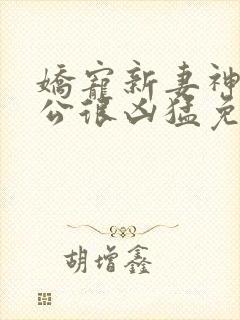 嬌寵新妻神
公很凶猛免
胡增鑫